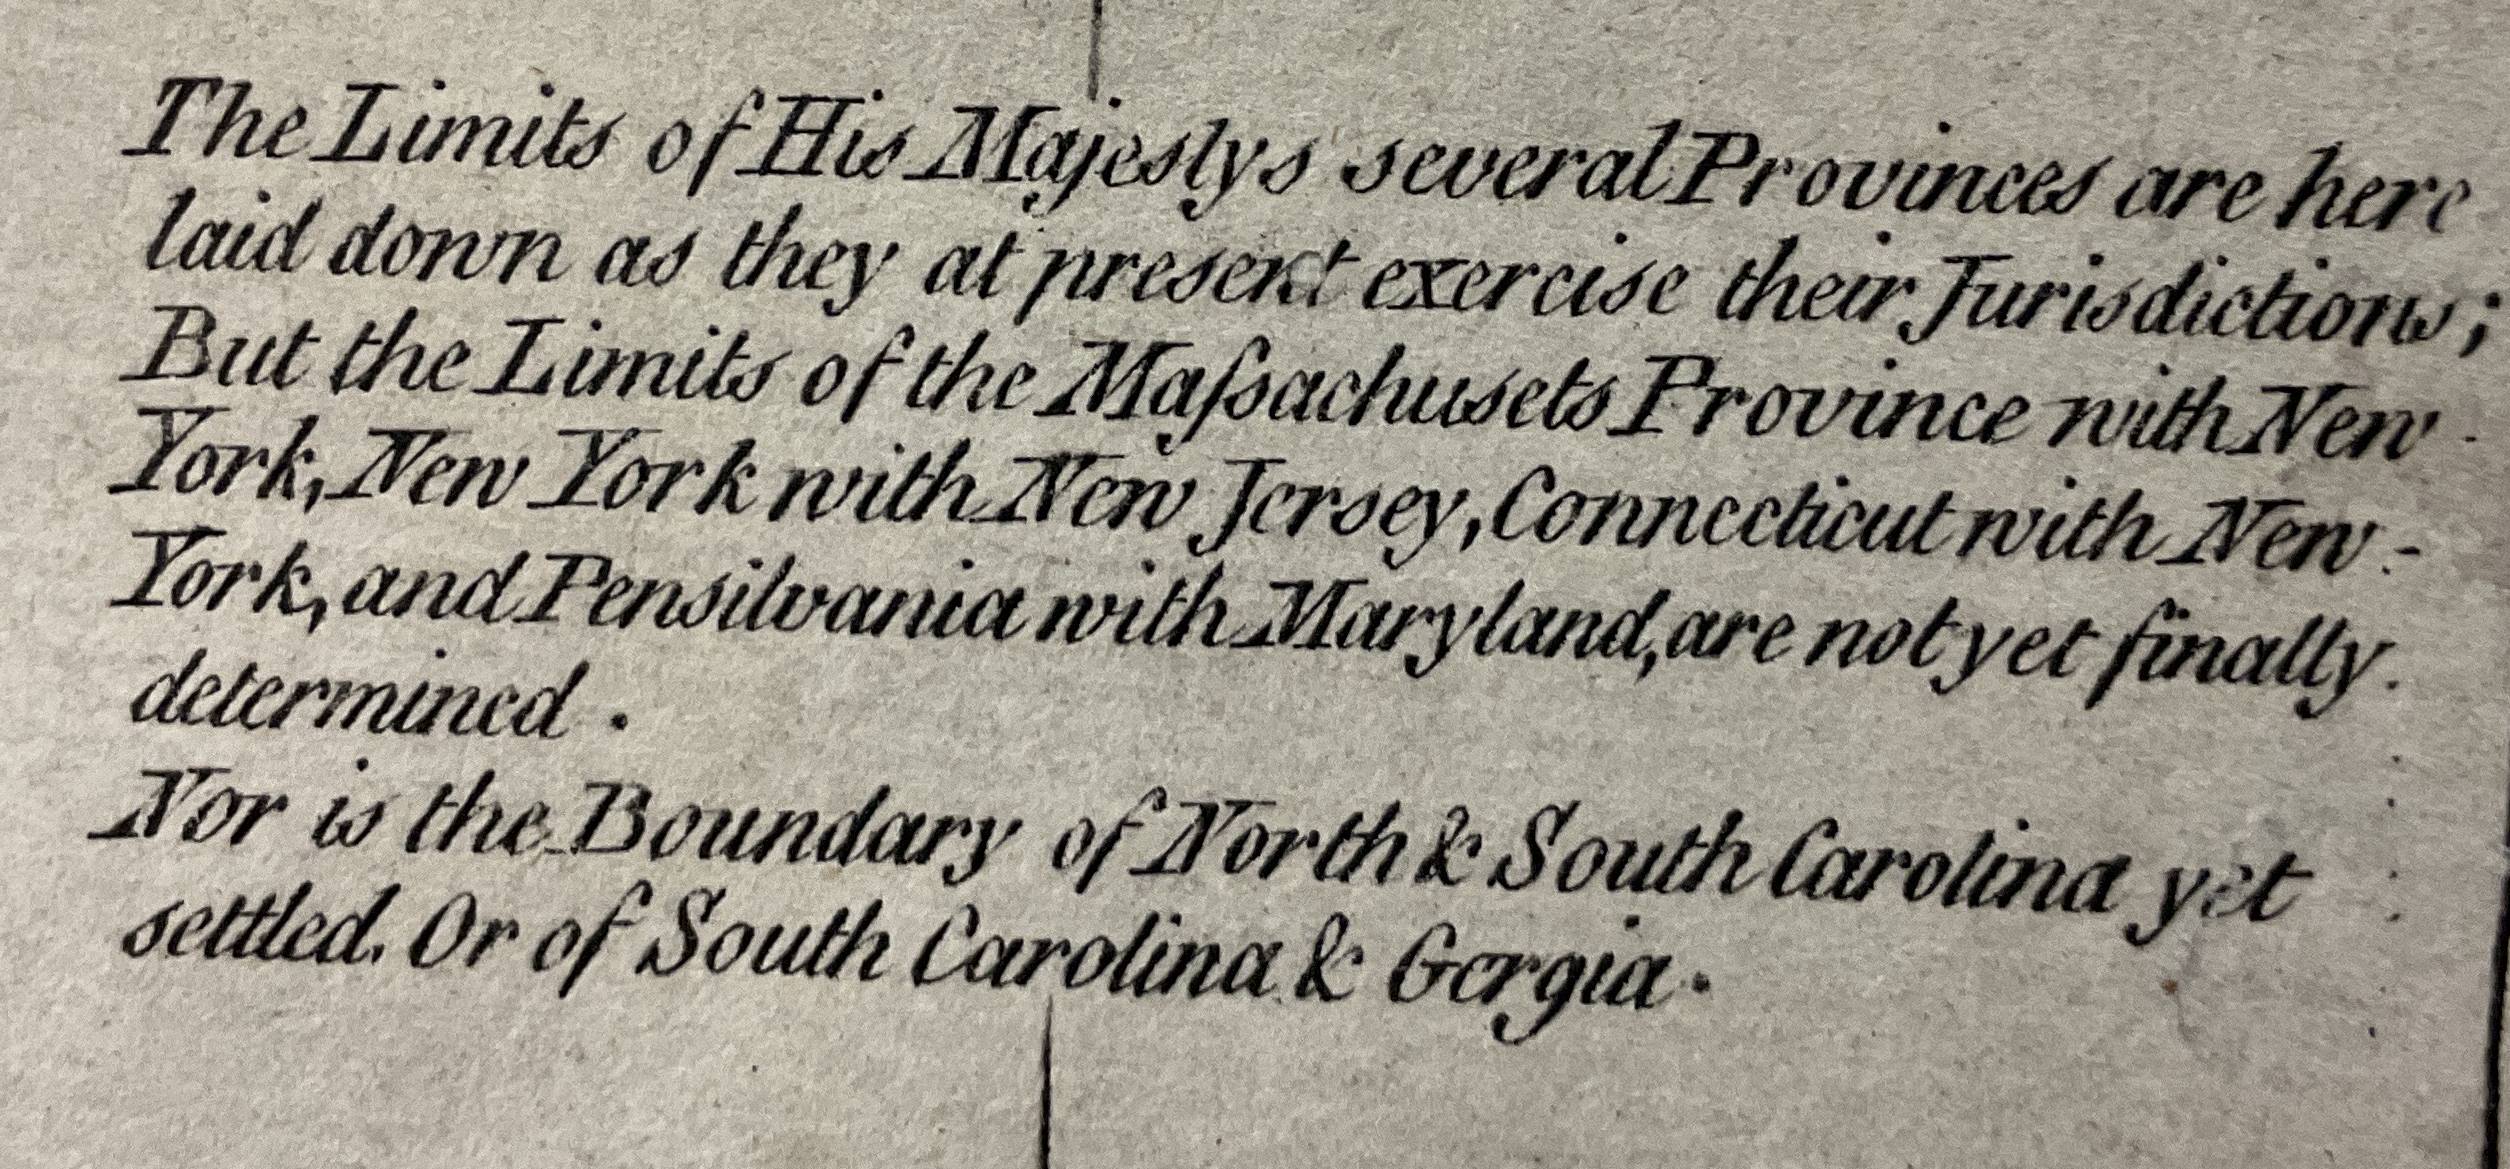 The Limits of His Majestys several Provinces are here
laid down as they at present exercise their Jurisdictions;
But the Limits of the Maſsachusets Province with New-
York, New York with New Jersey, Connecticut with New-
York, and Pensilvania with Maryland, are not yet finally
determined.
Nor is the Boundary of North & South Carolina yet
settled. Or of South Carolina & Gorgia.